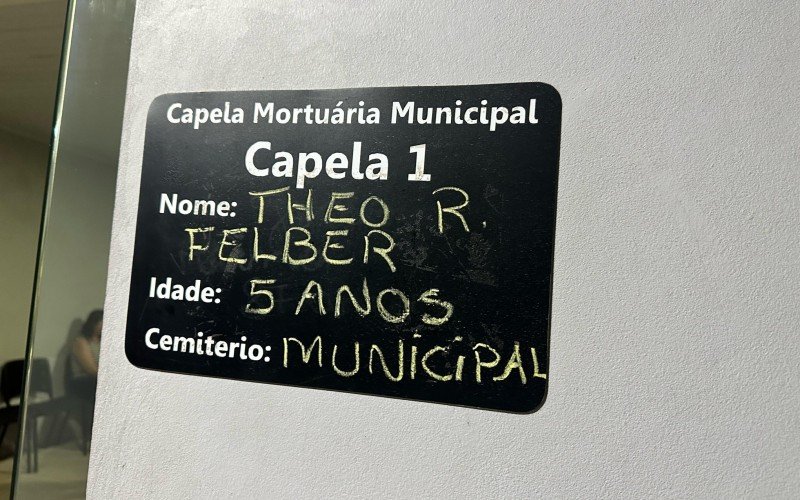 Capela Mortuária Municipal
Capela 1
Nome: THEO R.
FELBER
Idade: 5 ANOS
Cemiterio: MUNICIPAL